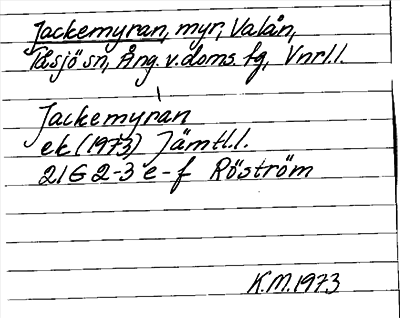 Jackemyran, myr, Valån,
Tåsjö sn, Ång. v. doms. fg, Vnrl.l.
Jackemyran
ek (1973) Jämtl.l.
21G 2-3 e-f Röström
K.M. 1973